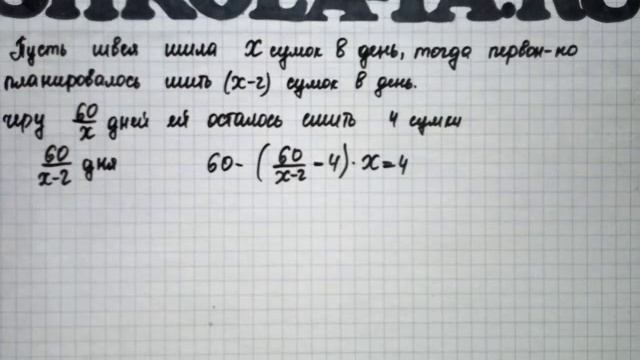 SHKOLA-1A.RU
Пусть швея шила X сумок в день, тогда первон-но
планировалось шить (x-2) сумок в день.
60/x дней ей осталось сшить 4 сумки
60/(x-2) дня 60 - (60/(x-2) - 4) · x = 4